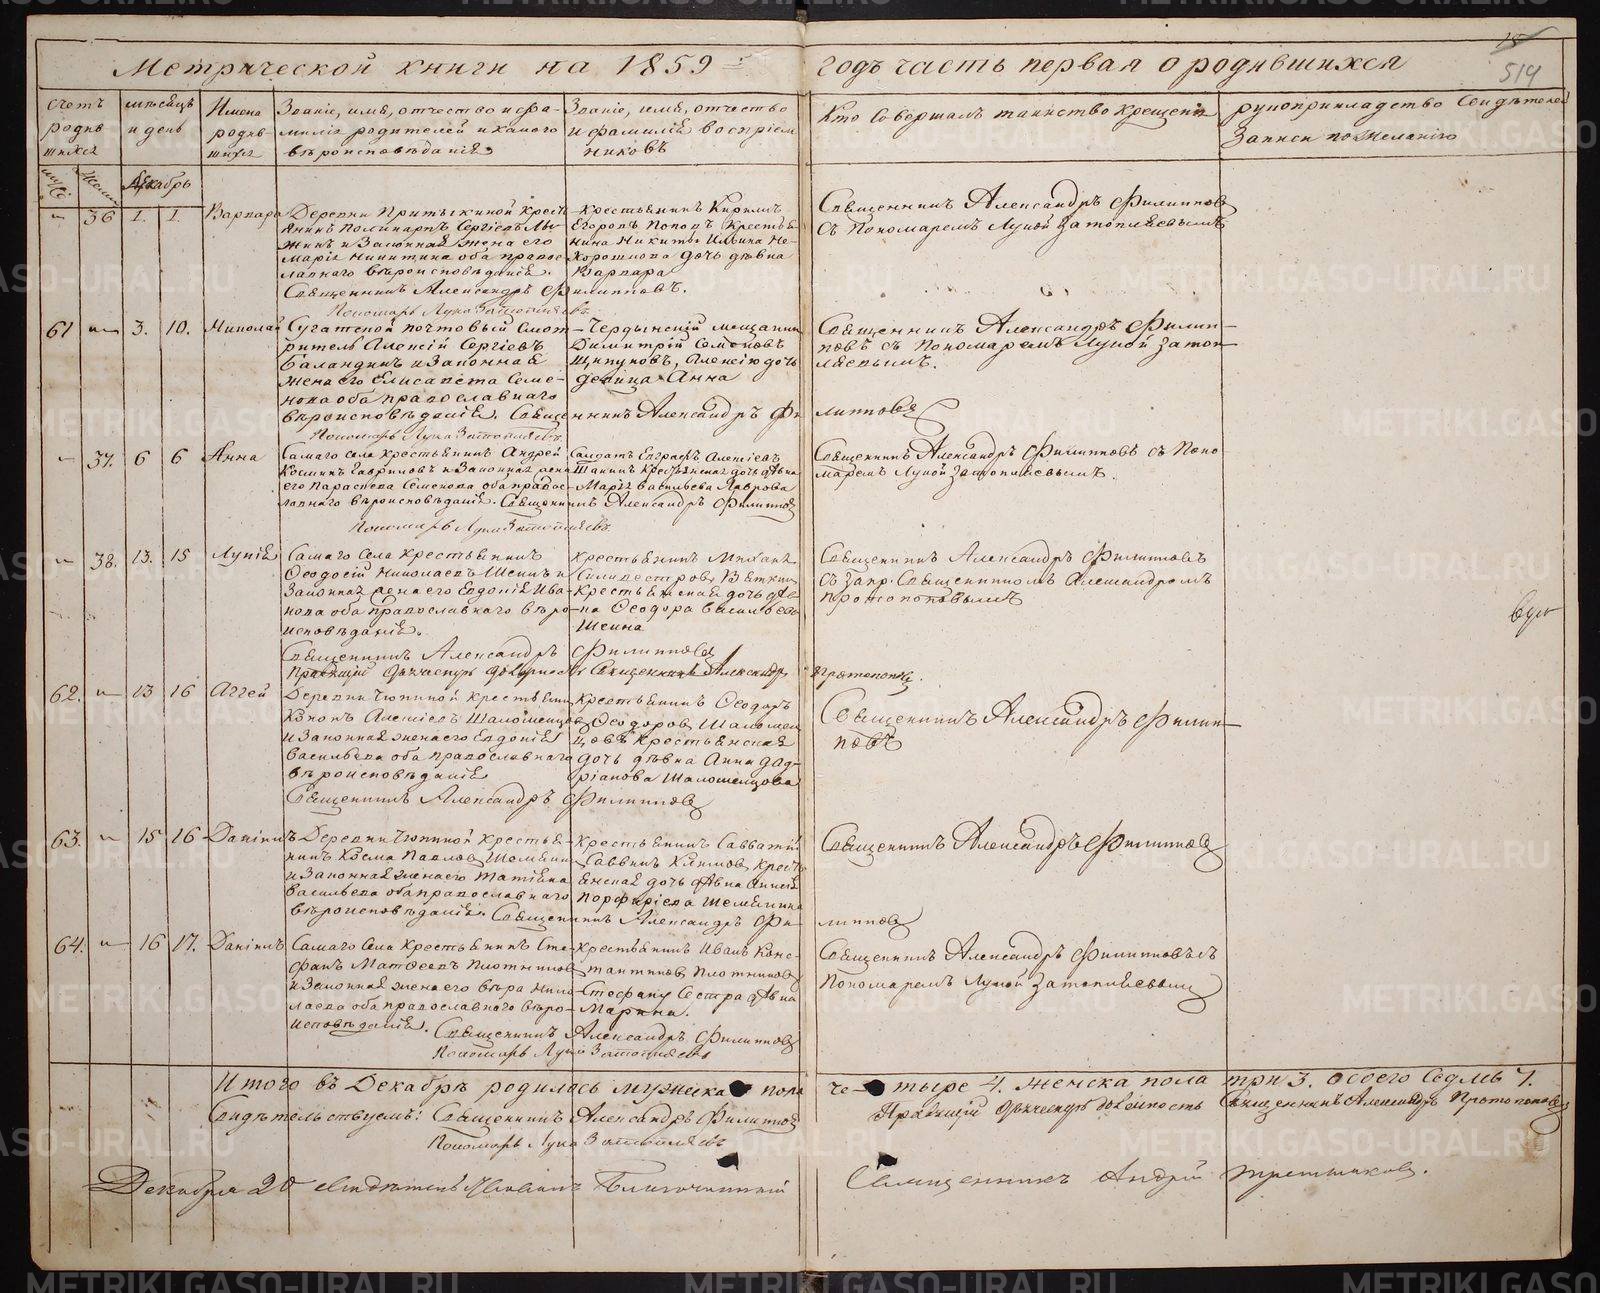 Метрической книги на 1859 годъ часть первая о родившихся
514
счетъ родившихся
мѣсяцъ и день
Имена родившихся
Званіе, имя, отчество и фамилія родителей и какого вѣроисповѣданія
Званіе, имя, отчество и фамилія воспріемниковъ
Кто совершалъ таинство крещенія
рукоприкладство свидѣтелей записи по желанію
Декабрь
36 1. 1. Варвара
Деревни Притыкиной кресть-
янинъ Поликарпъ Сергіевъ
и законная жена его
Марія Никитина оба правос-
лавнаго вѣроисповѣданія.
Священникъ Александръ Филипповъ.
Пономарь Лука Затопляевъ.
крестьянинъ Кирилъ
Егоровъ Поповъ крестья-
нина Никиты Ильина Не-
хорошкова дочь дѣвка
Варвара
Священникъ Александръ Филипповъ
съ Пономаремъ Лукой Затопляевымъ
61 3. 10. Николай
Сугатской почтовый смот-
ритель Алексій Сергіевъ
Баландинъ и законная
жена его Елисавета Семе-
нова оба православнаго
вѣроисповѣданія. Священникъ Александръ Филипповъ
Пономарь Лука Затопляевъ.
Чердынскій мещанинъ
Димитрій Семеновъ
Щипуновъ, Алексію дочь
девица Анна
Священникъ Александръ Филип-
повъ съ Пономаремъ Лукой Затоп-
ляевымъ.
37. 6 6 Анна
Самаго села крестьянинъ Андрей
Косминъ Гавриловъ и законная жена
его Параскева Семенова оба правос-
лавнаго вѣроисповѣданія. Священникъ Александръ Филипповъ
Пономарь Лука Затопляевъ.
Солдатъ Евграфъ Алексіевъ
Шанинъ крестьянская дочь дѣвка
Марія Васильева Лаврова
Священникъ Александръ Филипповъ съ Поно-
маремъ Лукой Затопляевымъ.
38. 13. 15 Лукія
Самаго села крестьянинъ
Ѳеодосій Николаевъ Шеинъ и
законная жена его Евдокія Ива-
нова оба православнаго вѣро-
исповѣданія.
Священникъ Александръ Филипповъ
Правящій должность Священникъ Александръ Протопоповъ.
крестьянинъ Михаилъ
Силивестровъ Вяткинъ
крестьянская дочь дѣв-
ка Ѳеодора Васильева
Шеина
Священникъ Александръ Филипповъ
съ Священникомъ Александромъ
Протопоповымъ
62. 13 16 Аггей
Деревни Чюпиной крестьянинъ
Кононъ Алексіевъ Шаломенцовъ
и законная жена его Евдокія
Васильева оба православнаго
вѣроисповѣданія
Священникъ Александръ Филипповъ
крестьянинъ Ѳеодоръ
Ѳеодоровъ Шаломен-
цовъ крестьянская
дочь дѣвка Анна Ад-
ріанова Шаломенцова
Священникъ Александръ Филип-
повъ
63. 15 16 Даніилъ
Деревни Чюпиной крестья-
нинъ Косма Павловъ Шемякинъ
и законная жена его Татіана
Васильева оба православнаго
вѣроисповѣданія. Священникъ Александръ Филипповъ
крестьянинъ Савватій
Саввинъ Климовъ кресть-
янская дочь дѣвка
Порфиріева Шемякина
Священникъ Александръ Филипповъ
64. 16 17. Даніилъ
Самаго села крестьянинъ Сте-
фанъ Матѳеевъ Плотниковъ
и законная жена его Вѣра Нико-
лаева оба православнаго вѣро-
исповѣданія. Священникъ Александръ Филипповъ
Пономарь Лука Затопляевъ
крестьянинъ Иванъ Конс-
тантиновъ Плотниковъ
Стефану сестра дѣвка
Марина.
Священникъ Александръ Филипповъ съ
Пономаремъ Лукой Затопляевымъ
Итого въ Декабрѣ родилось мужеска пола четыре 4. женска пола три 3. обоего седмь 7.
Свидѣтельствуемъ: Священникъ Александръ Филипповъ
Правящій должность Священникъ Александръ Протопоповъ
Пономарь Лука Затопляевъ
Декабря 20 Благочинный Священникъ Андрій Третьяковъ.
METRIKI.GASO-URAL.RU